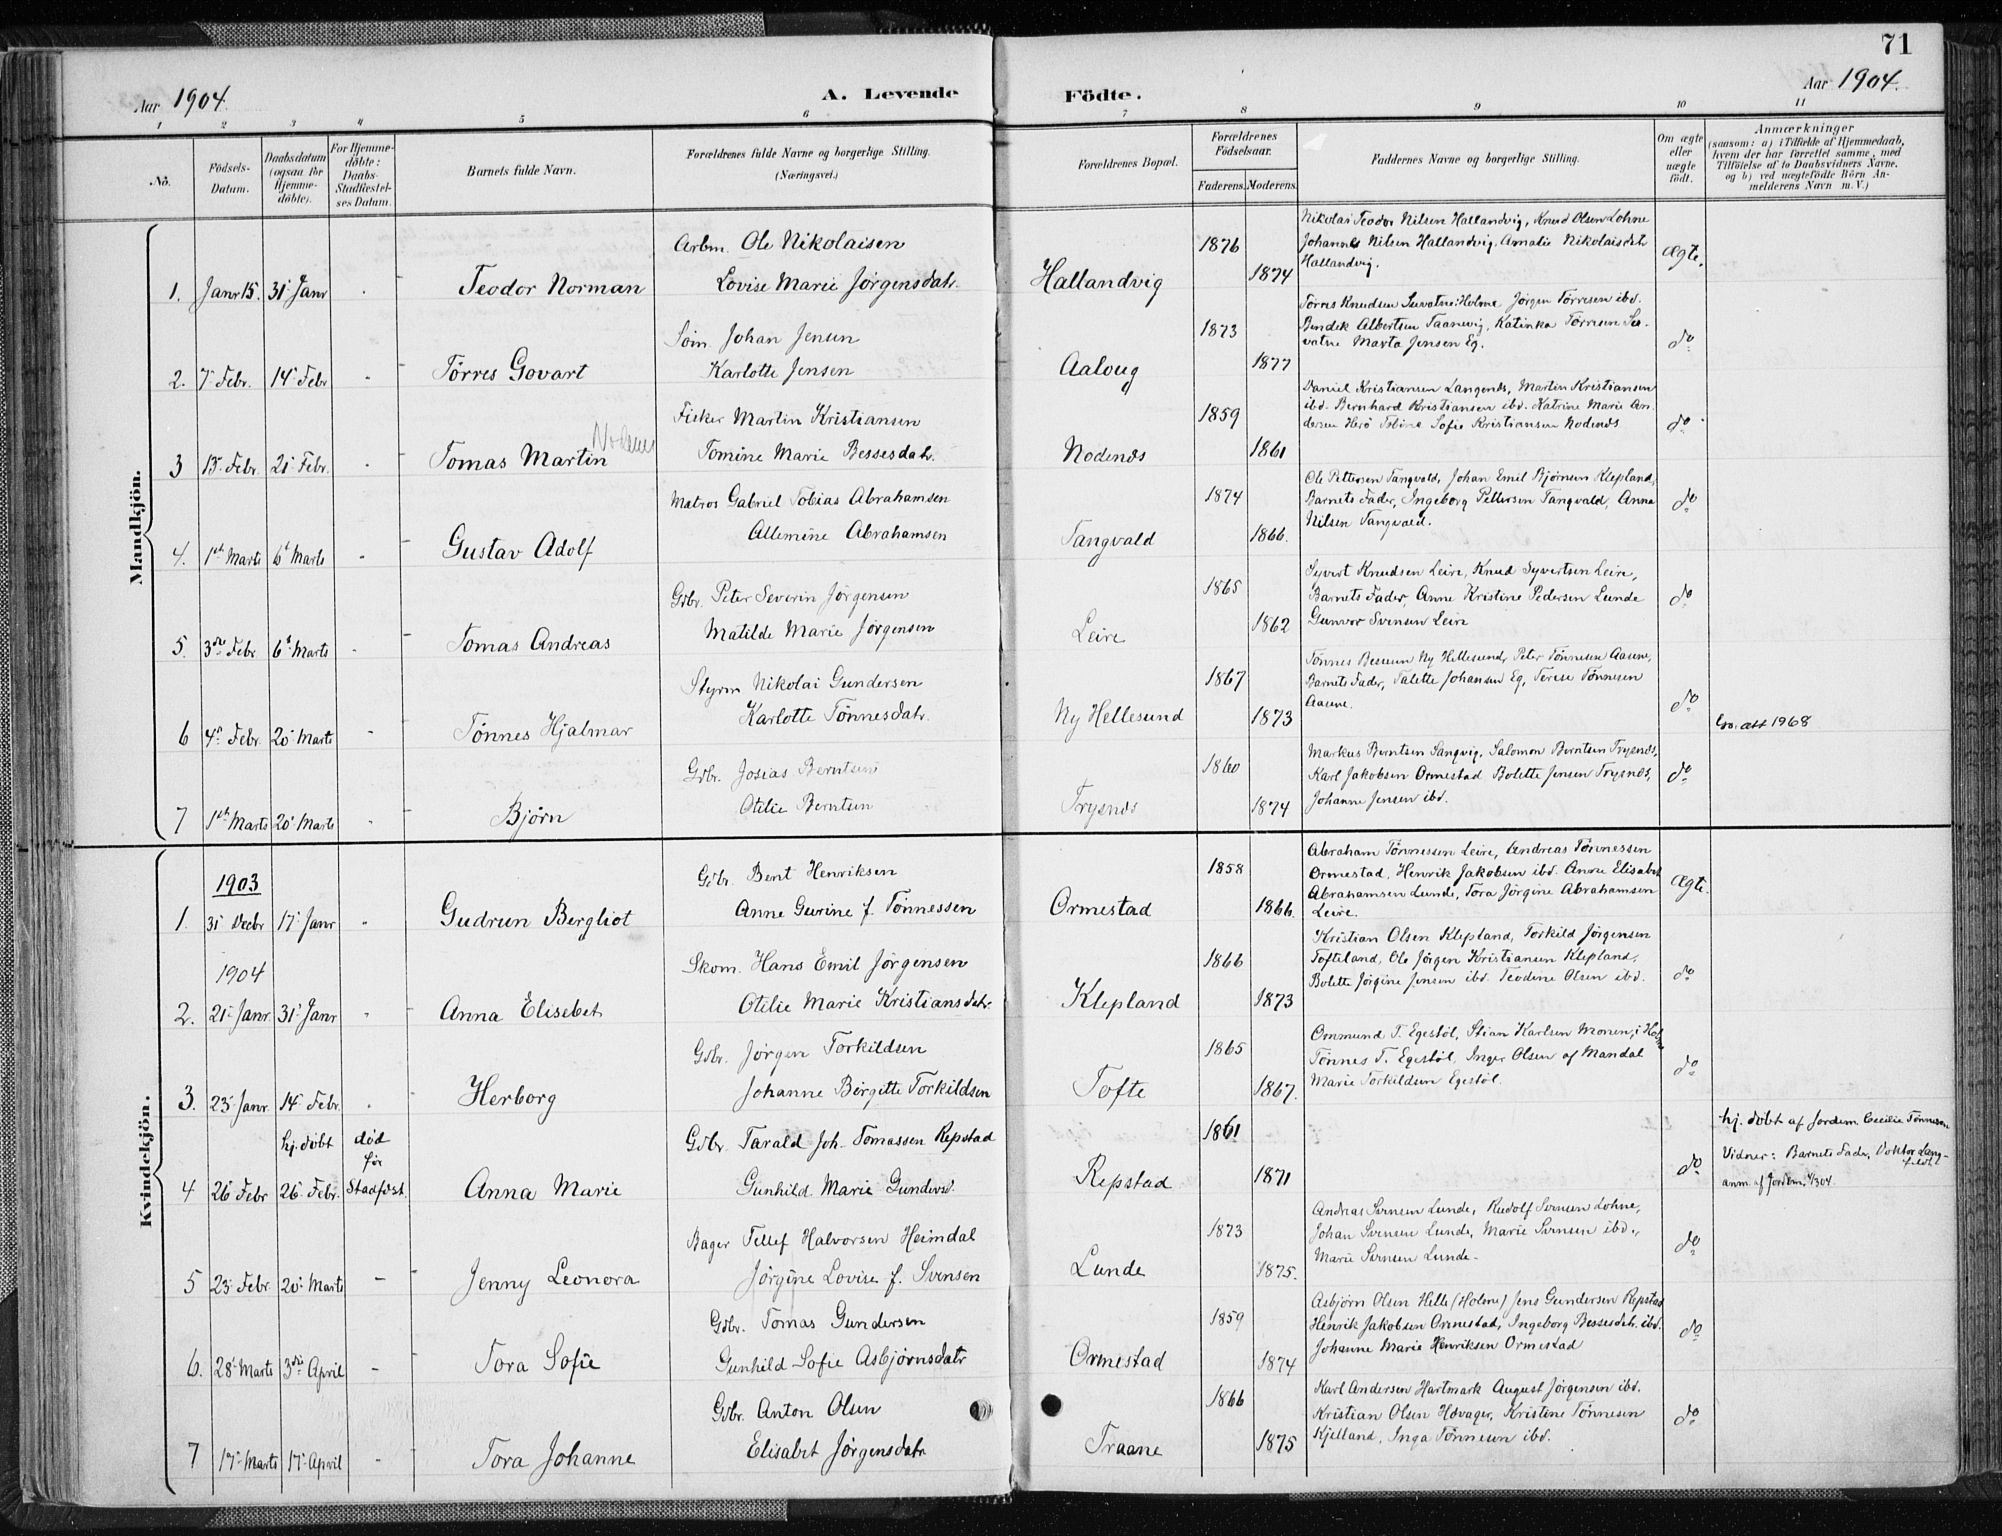 71
Aar 1904.
A. Levende Födte.
Aar 1904.
1 2 3 4 5 6 7 8 9 10 11
No.
Födsels-Datum.
Daabsdatum (ogsaa for Hjemme-döbte).
For Hjemme-döbte: Daabs-Stadfæstel-ses Datum.
Barnets fulde Navn.
Forældrenes fulde Navne og borgerlige Stilling. (Næringsvei.)
Forældrenes Bopæl.
Forældrenes Födselsaar.
Faderens. Moderens.
Faddernes Navne og borgerlige Stilling.
Om ægte eller uægte födt.
Anmærkninger
(saasom: a) i Tilfælde af Hjemmedaab,
hvem der har forrettet samme, med
Tilföielse af to Daabsvidners Navne,
og b) ved uægtefödte Börn An-
melderens Navn m. V.)
Mandkjön.
Arbm. Ole Nikolaisen
1. Janr 15. 31. Janr - Teodor Norman Lovise Marie Jörgensdatr. Hallandvig 1876 1874
Nikolai Teodor Nilsen Hallandvig, Knud Olsen Lohne
Johannes Nilsen Hallandvig, Amalie Nikolaisdtr
Hallandvig.
Ægte.
Söm. Johan Jensen
2. 7. Febr. 14. Febr - Törres Govart Karlotte Jensen Aaloug 1873 1877
Törres Knudsen Holme, Jörgen Törresen ibd.
Bendik Albertsen Taanevig, Katinka Törresen Se-
vatne Marta Jensen Eg.
do
Fisker Martin Kristiansen
3 15. Febr. 21. Febr. - Tomas Martin Tomine Marie Bessesdatr. Nodenæs 1859 1861
Daniel Kristiansen Langenæs, Martin Kristiansen
ibd. Bernhard Kristiansen ibd. Katrine Marie An-
dersen Herö Tobine Sofie Kristiansen Nodenæs
do
Matros Gabriel Tobias Abrahamsen
4. 1ste Marts 6te Marts - Gustav Adolf Allemine Abrahamsen Tangvald 1874 1866.
Ole Pettersen Tangvald, Johan Emil Bjørnsen Klepland,
Barnets Fader, Ingeborg Pettersen Tangvald, Anna
Nilsen Tangvald.
do
Gdbr. Peter Severin Jörgensen
5. 3die Febr 6te Marts - Tomas Andreas Matilde Marie Jörgensen Leire 1865 1862
Syvert Knudsen Leire, Knud Syvertsen Leire,
Barnets Fader, Anne Kristine Pedersen Lunde
Gunvor Svensen Leire
do
Styrm Nikolai Gundersen
6 4de Febr. 20. Marts - Tønnes Hjalmar Karlotte Tönnesdatr. Ny Hellesund 1867 1873
Tönnes Bessesen Ny Hellesund, Peter Tönnesen Aasene,
Barnets Fader, Talette Johansen Eg, Terese Tönnesen
Aasene.
do
att 1968
Gdbr. Josias Berntsen
7 1ste Marts 20. Marts - Bjørn Otilie Berntsen Trysnæs 1860 1874
Markus Berntsen Sangvig, Salomon Berntsen Trysnæs,
Karl Jakobsen Ormestad Bolette Jensen Trysnæs,
Johanne Jensen ibd.
do
Kvindekjön.
1903
Gdbr. Bent Henriksen
1. 31 Decbr 17. Janr - Gudrun Bergliot Anne Gurine f. Tönnessen Ormestad 1858 1866.
Abraham Tönnessen Leire, Andreas Tönnessen
Ormestad, Henrik Jakobsen ibd. Anne Elisabet
Abrahamsen Lunde, Tora Jörgine Abrahamsen
Leire.
Ægte.
1904
Skom. Hans Emil Jörgensen
2. 21. Janr. 31. Janr - Anna Elisebet Otilie Marie Kristiansdatr. Klepland 1866 1873
Kristian Olsen Klepland, Torkild Jörgensen
Tofteland, Ole Jörgen Kristiansen Klepland,
Bolette Jörgine Jensen ibd. Teodine Olsen ibd.
do
Gdbr. Jörgen Torkildsen
3. 23. Janr. 14. Febr. - Herborg Johanne Birgitte Torkildsen Tofte 1865 1867.
Ommund T. Egestöl, Stian Karlsen Monen, i Holme
Tönnes T. Egestöl, Inger Olsen af Mandal
Marie Torkildsen Egestöl.
do
hj. döbt død før
Gdbr Tarald Joh. Tomassen Repstad
4 26 Febr 26. Febr. Stadfæst. Anna Marie Gunhild Marie Gundersd. Repstad 1861 1871
do
hj. döbt af Jordem. Cecilie Tönnesen
Vidner: Barnets Fader, Doktor Lang-
feldt
anm. af Jordem. 4/3 04.
Bager Tellef Halvorsen Heimdal
5 23. Febr 20. Marts - Jenny Leonora Jörgine Lovise f. Svensen Lunde 1873 1875.
Andreas Svensen Lunde, Rudolf Svensen Lohne,
Johan Svensen Lunde, Marie Svensen ibd.,
Marie Svensen Lunde.
do
Gdbr. Tomas Gundersen
6. 28. Marts 3die April - Tora Sofie Gunhild Sofie Asbjørnsdatr Ormestad 1859 1874
Asbjørn Olsen Helle (Holme) Jens Gundersen Repstad
Henrik Jakobsen Ormestad, Ingeborg Bessesdtr. ibd.
Johanne Marie Henriksen Ormestad
do
Gdbr. Anton Olsen
7 17. Marts 17. April - Tora Johanne Elisabet Jörgensdatr Traane 1866 1875
Karl Andersen Hartmark August Jörgensen ibd.
Kristian Olsen Høvager, Kristine Tönnesen
Kjelland, Inga Tönnesen ibd.
do